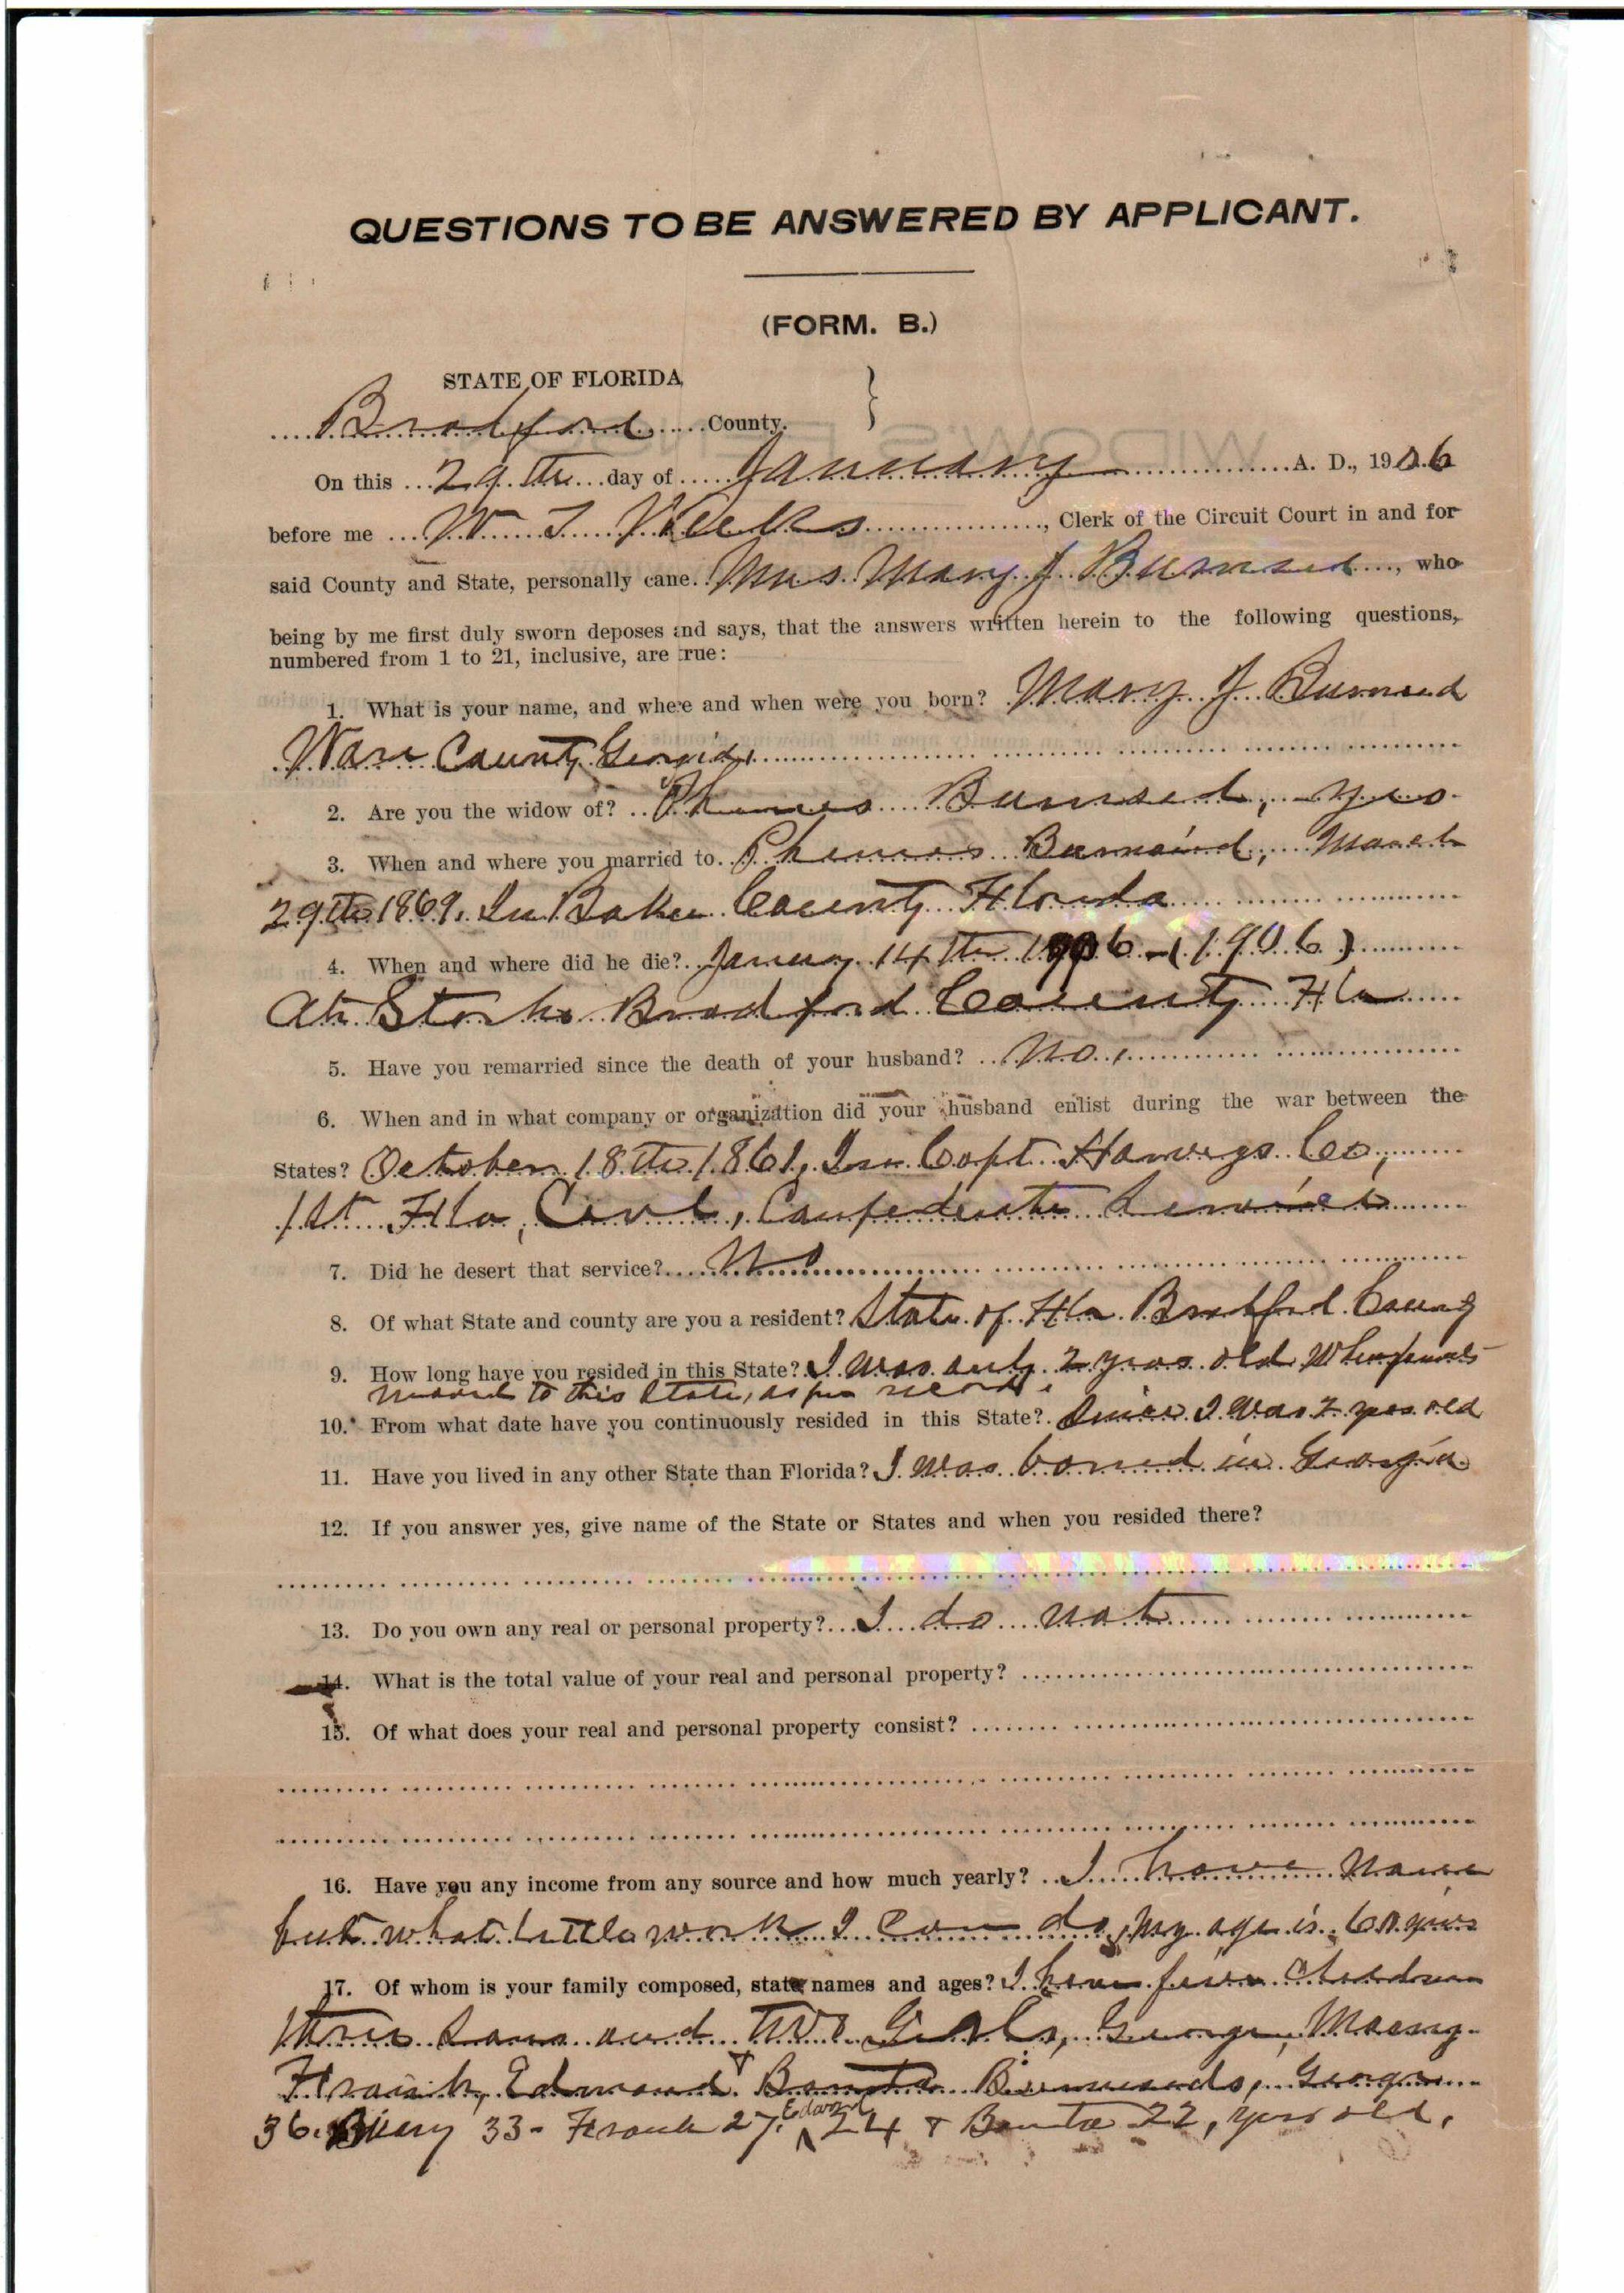 QUESTIONS TO BE ANSWERED BY APPLICANT.
(FORM. B.)
STATE OF FLORIDA }
Bradford County.
On this 29th day of January A. D., 1906
before me W T Weeks, Clerk of the Circuit Court in and for
said County and State, personally cane Mrs. Mary J Burnsed, who
being by me first duly sworn deposes and says, that the answers written herein to the following questions,
numbered from 1 to 21, inclusive, are true:
1. What is your name, and where and when were you born? Mary J Burnsed
Ware County Georgia
2. Are you the widow of? Burnsed, yes
3. When and where you married to Burnsed, March
29th 1869, In Baker County Florida
4. When and where did he die? January 14th 1906 - (1906)
At Starke Bradford County Fla
5. Have you remarried since the death of your husband? No,
6. When and in what company or organization did your husband enlist during the war between the
States? October 18th 1861, In Capt. Co,
1st Fla, Cavl, Confederate Service
7. Did he desert that service? No
8. Of what State and county are you a resident? State of Fla Bradford County
9. How long have you resided in this State? I was only 2 years old When parents
moved to this State, as per record.
10. From what date have you continuously resided in this State? Since I was 2 years old
11. Have you lived in any other State than Florida? I was borned in Georgia
12. If you answer yes, give name of the State or States and when you resided there?
13. Do you own any real or personal property? I do not
14. What is the total value of your real and personal property?
15. Of what does your real and personal property consist?
16. Have you any income from any source and how much yearly? I have none
but what little work I can do, My age is 60 years
17. Of whom is your family composed, state names and ages? I have five Children
three sons and two Girls, George,
Frank, Edmond & Burnseds, George
36. 33- Frank 27, Edward 24 & 22, years old,